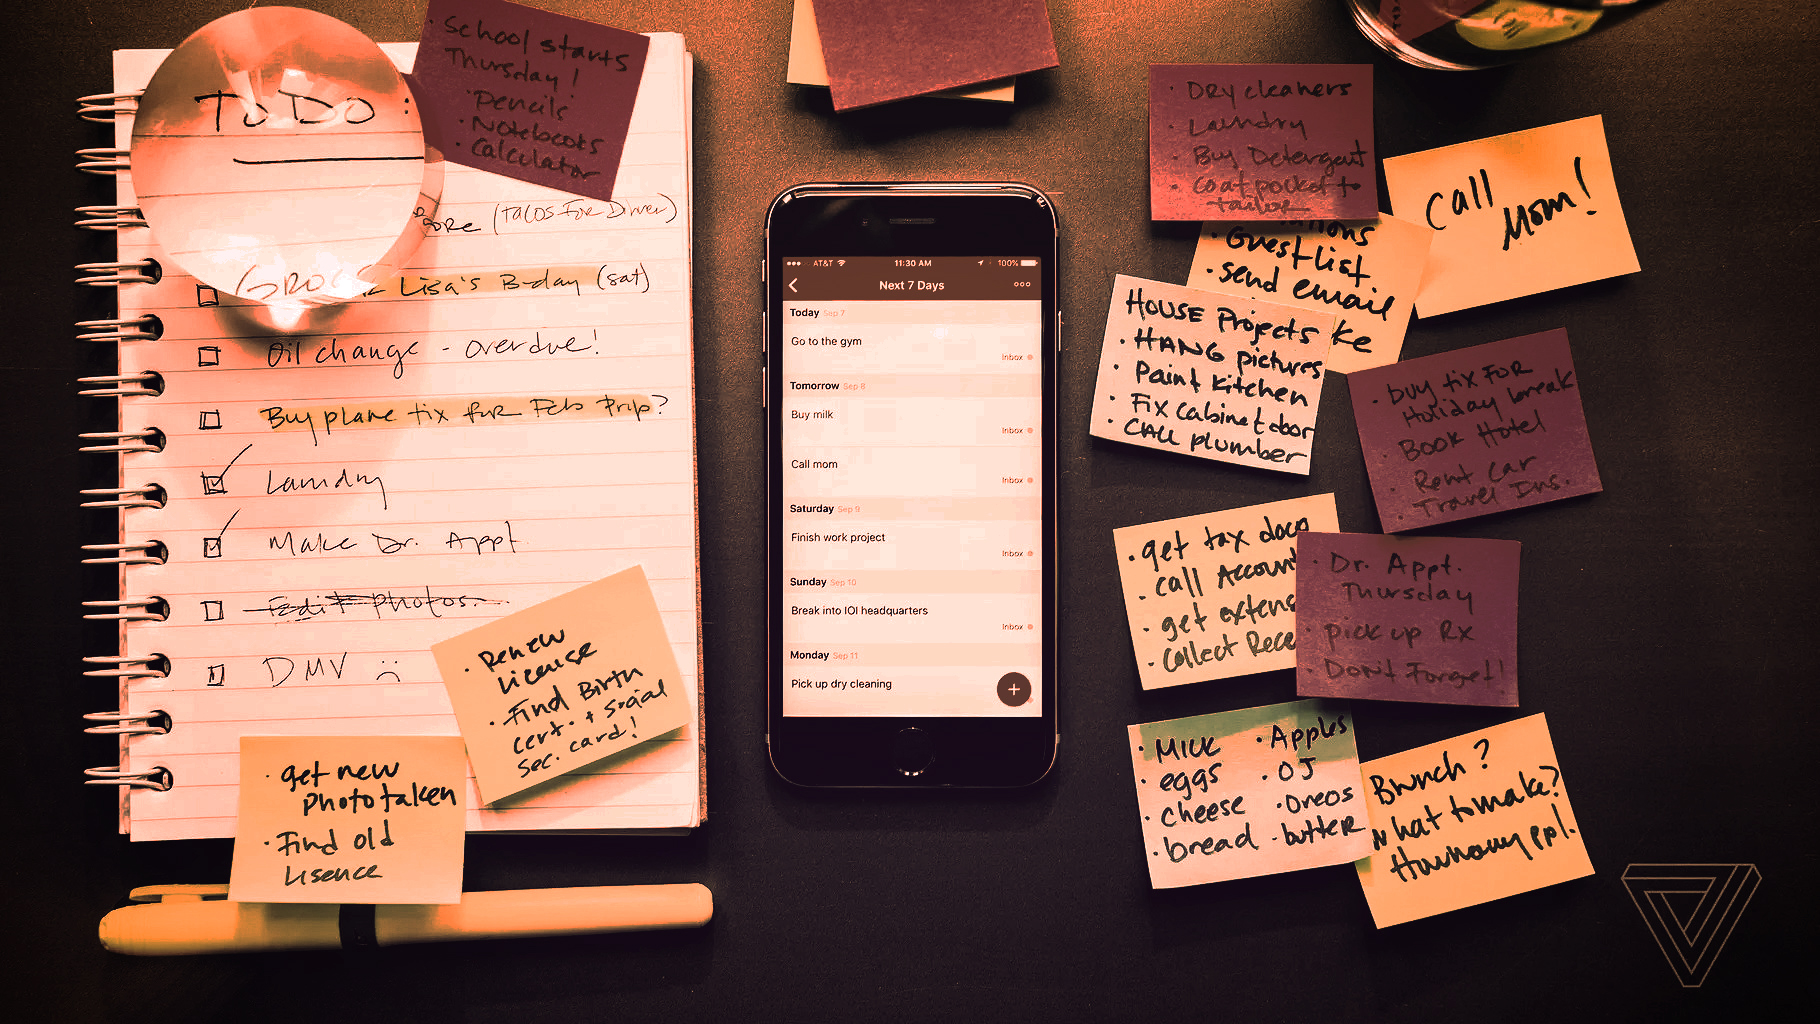 TO DO:
(Tacos For Dinner)
Lisa's B-day (sat)
Oil change - overdue!
Buy plane tix for Feb Trip?
Laundry
Make Dr. Appt.
Edit photos.
DMV ☹
School starts
Thursday!
· Pencils
· Notebooks
· Calculator
· Renew
License
· Find Birth
cert. + social
sec. card!
· get new
photo taken
· Find old
Lisence
AT&T
11:30 AM
100%
Next 7 Days
Today Sep 7
Go to the gym
Inbox
Tomorrow Sep 8
Buy milk
Inbox
Call mom
Inbox
Saturday Sep 9
Finish work project
Inbox
Sunday Sep 10
Break into IOI headquarters
Inbox
Monday Sep 11
Pick up dry cleaning
· Dry cleaners
· Laundry
· Buy Detergent
· Coat pocket to
tailor
Call
Mom!
· Guest list
· send email
ke
HOUSE Projects
· HANG pictures
· Paint Kitchen
· Fix cabinet door
· CALL plumber
· buy tix FOR
Holiday break
· BOOK Hotel
· Rent Car
· Travel Ins.
· get tax docs
call Account
· get extens
· Collect Rece
· Dr. Appt.
Thursday
· pick up Rx
· Don't Forget!
· MILK
· eggs
· cheese
· bread
· Apples
· OJ
· Oreos
· butter
Brunch?
what to make?
How many ppl.